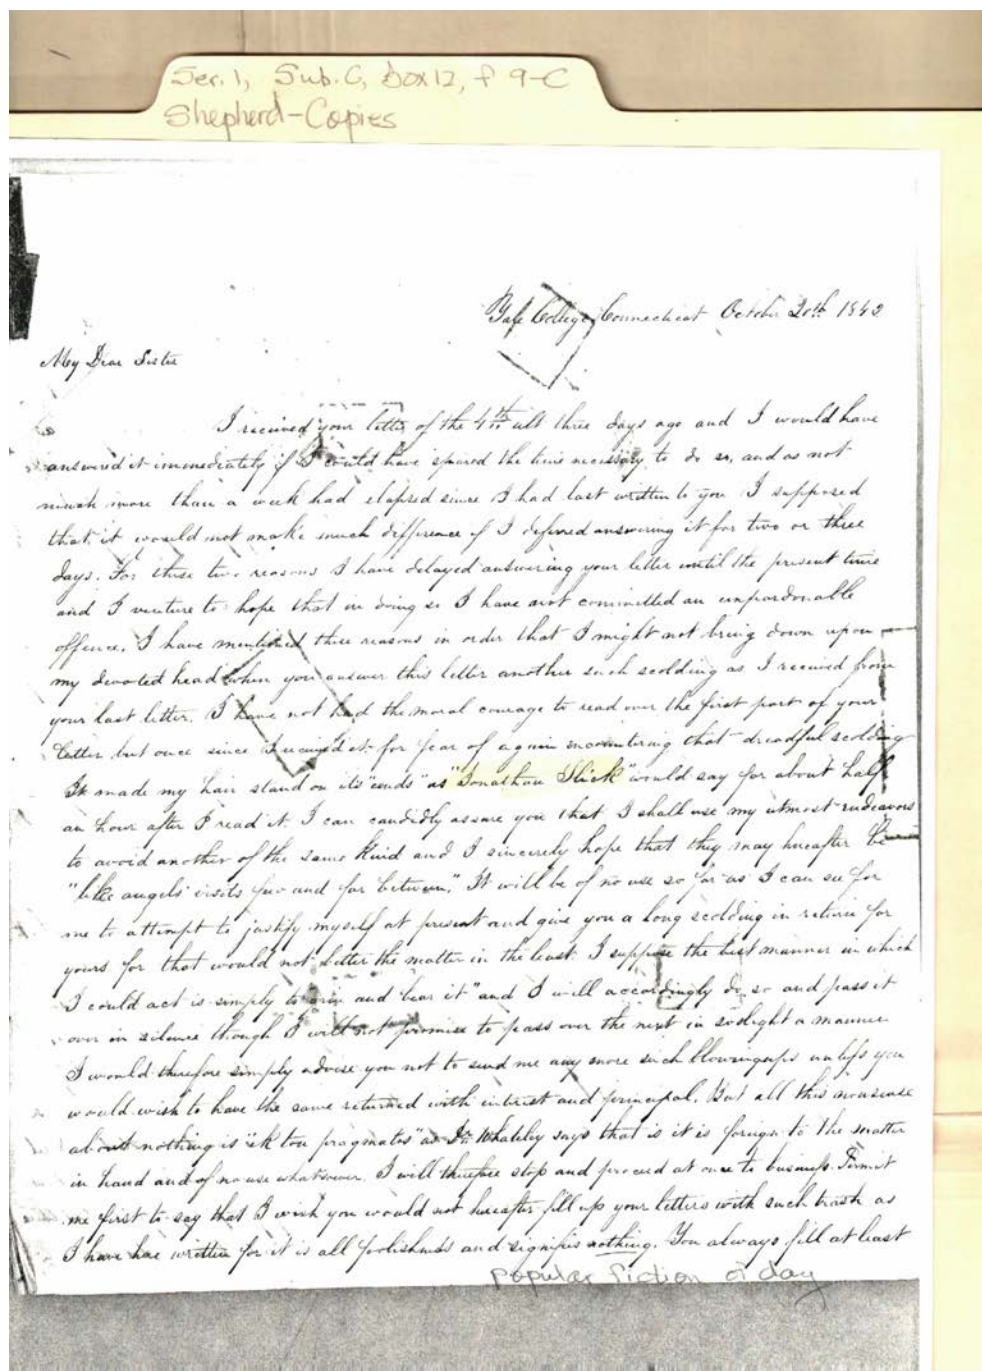 Ser. 1, Sub. C, Box 12, f 9-C
Shepherd-Copies
Yale College, Connecticut October 20th 1842
My Dear Sister
I received your letter of the 4th ult three days ago and I would have
answered it immediately if I could have spared the time necessary to do so, and as not
much more than a week had elapsed since I had last written to you I supposed
that it would not make much difference if I deferred answering it for two or three
days. For these two reasons I have delayed answering your letter until the present time
and I venture to hope that in doing so I have not committed an unpardonable
offence. I have mentioned these reasons in order that I might not bring down upon
my devoted head when you answer this letter another such scolding as I received from
your last letter. I have not had the moral courage to read over the first part of your
letter but once since I received it for fear of again encountering that dreadful scolding
It made my hair stand on its "eends" as "Jonathan Slick" would say for about half
an hour after I read it. I can candidly assure you that I shall use my utmost endeavors
to avoid another of the same kind and I sincerely hope that they may hereafter be
"like angels' visits few and far between." It will be of no use so far as I can see for
me to attempt to justify myself at present and give you a long scolding in return for
yours for that would not better the matter in the least. I suppose the best manner in which
I could act is simply to "grin and bear it" and I will accordingly do so and pass it
over in silence though I will not promise to pass over the next in so slight a manner
I would therefore simply advise you not to send me any more such blowingups unless you
would wish to have the same returned with interest and principal. But all this nonsense
about nothing is "ek tou pragmatos" as Dr. Whateley says that is it is foreign to the matter
in hand and of no use whatsoever. I will therefore stop and proceed at once to business. Permit
me first to say that I wish you would not hereafter fill up your letters with such trash as
I have here written for it is all foolishness and signifies nothing. You always fill at least
popular fiction of day